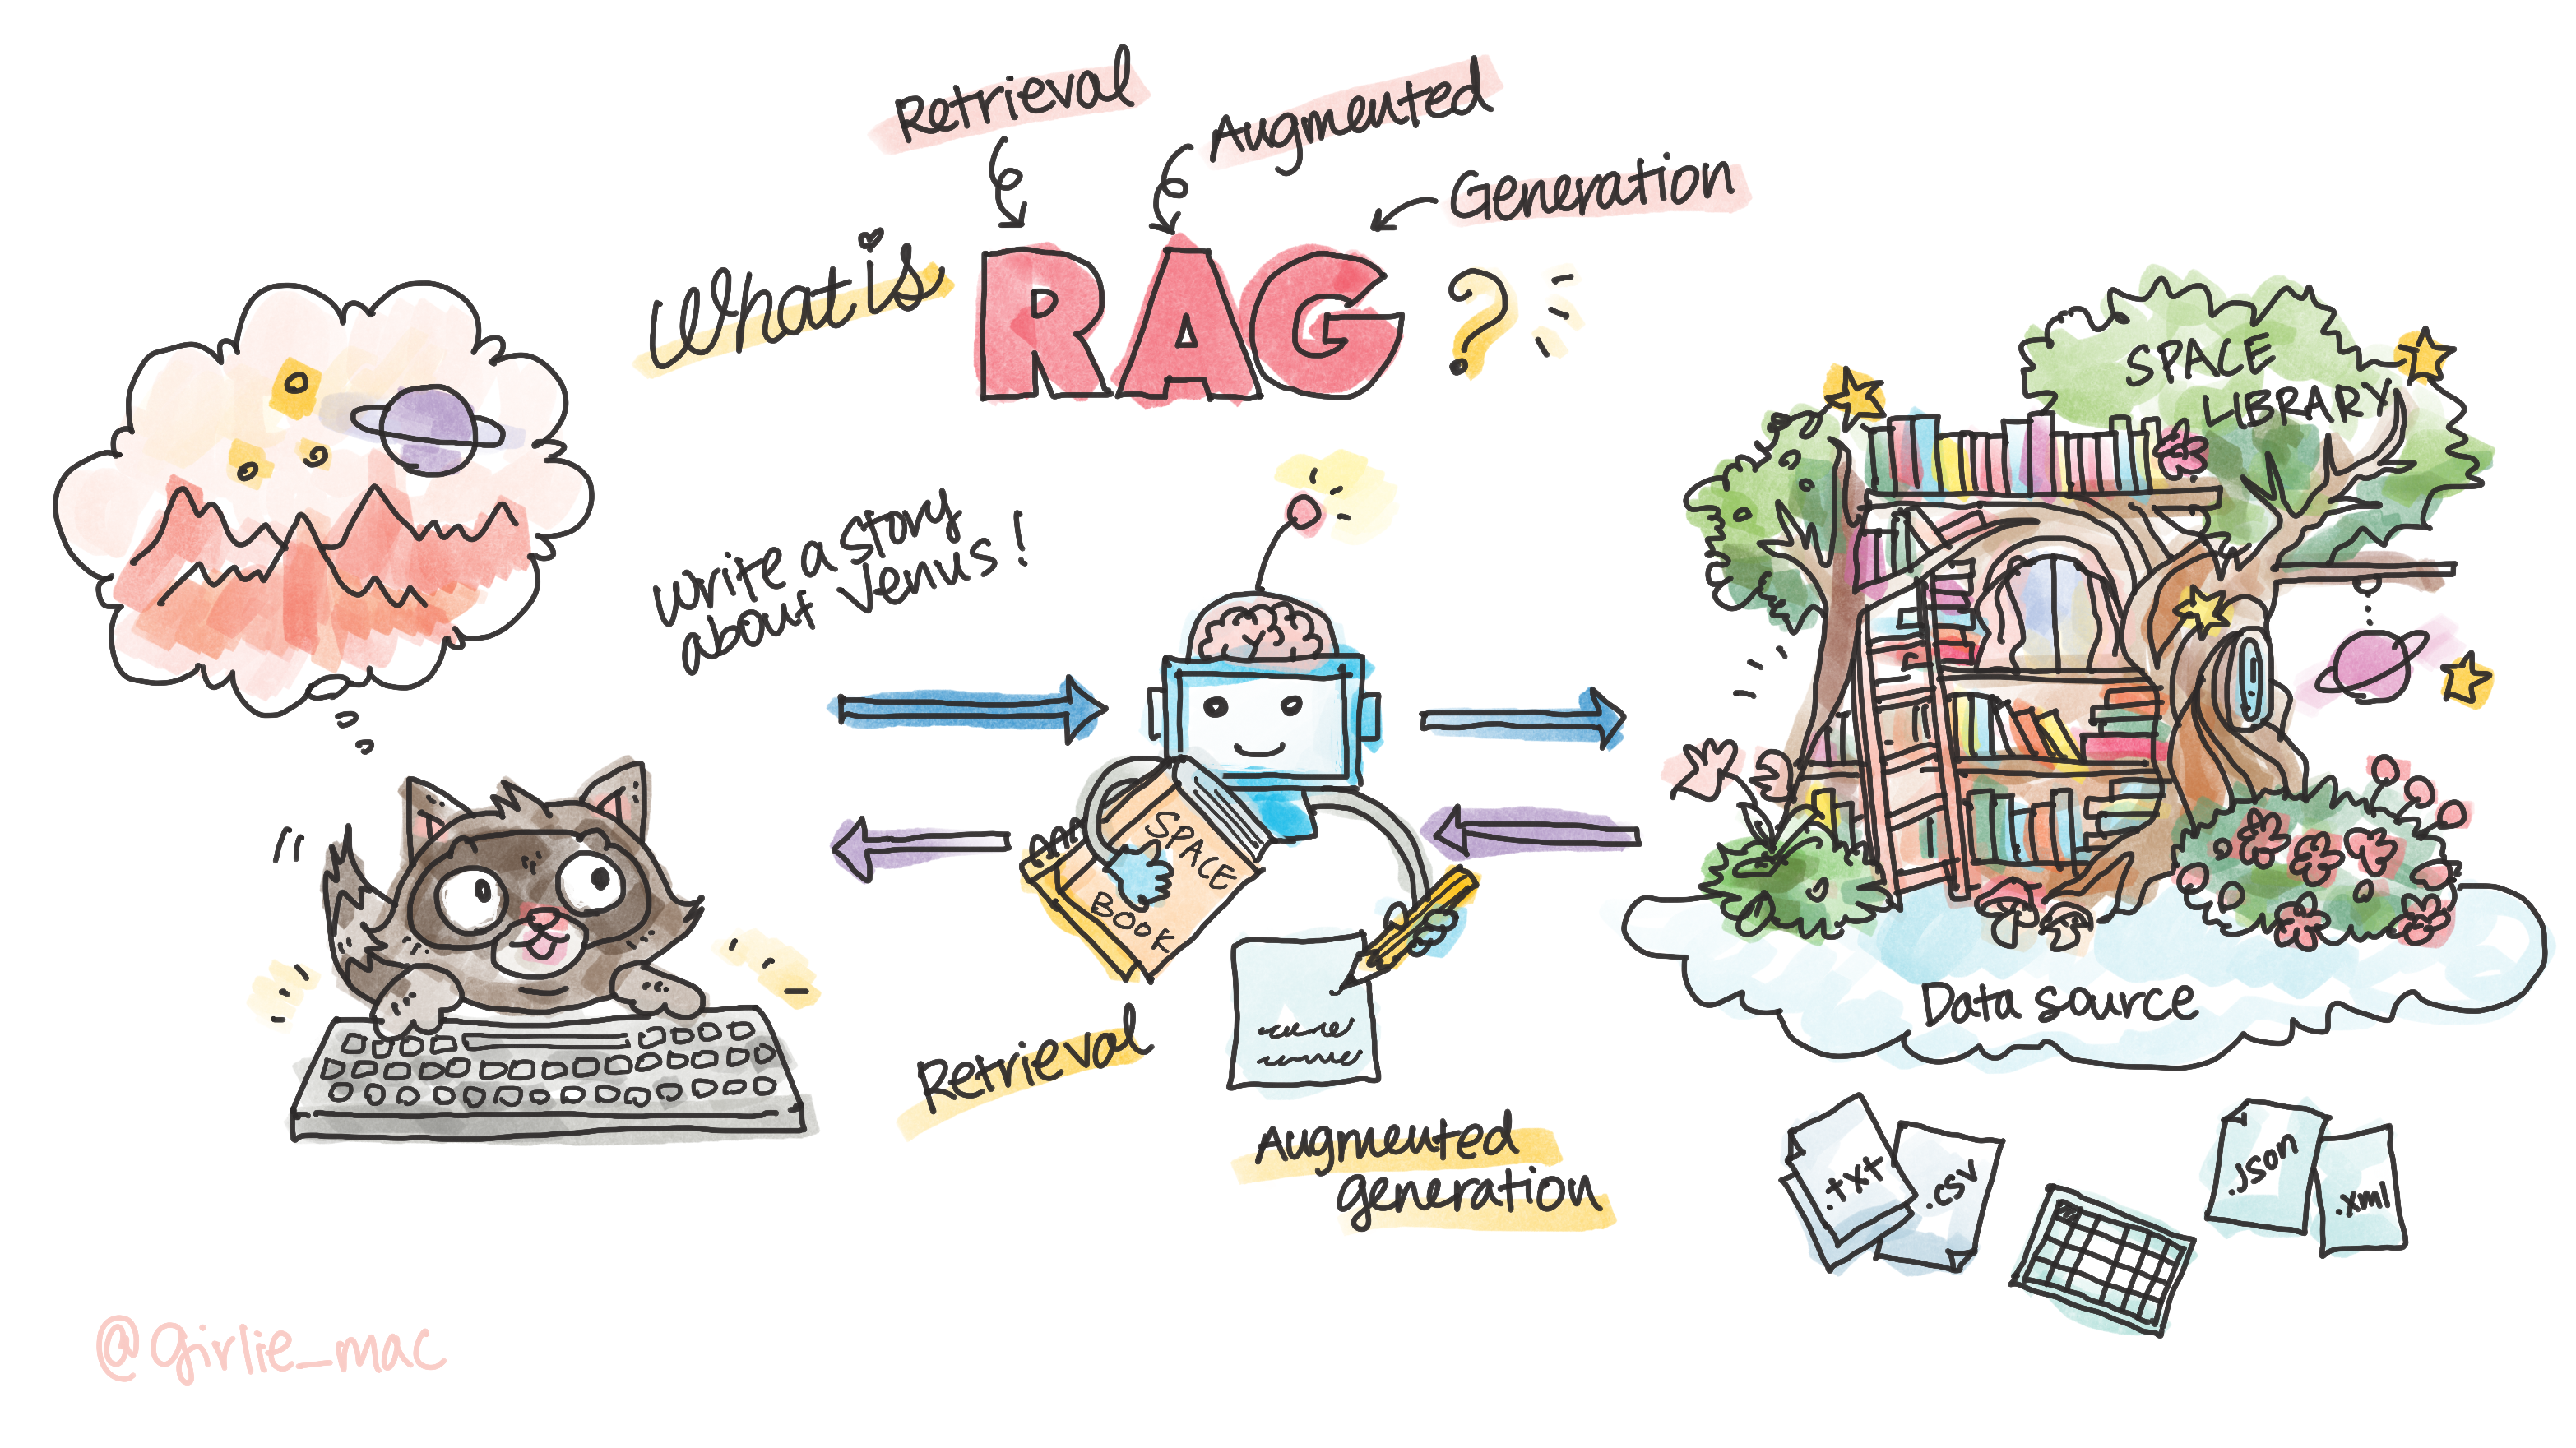 Retrieval
Augmented
Generation
What is RAG?
Write a story
about Venus!
SPACE
LIBRARY
SPACE
BOOK
Retrieval
Augmented
generation
Data source
.txt
.csv
.json
.xml
@girlie_mac